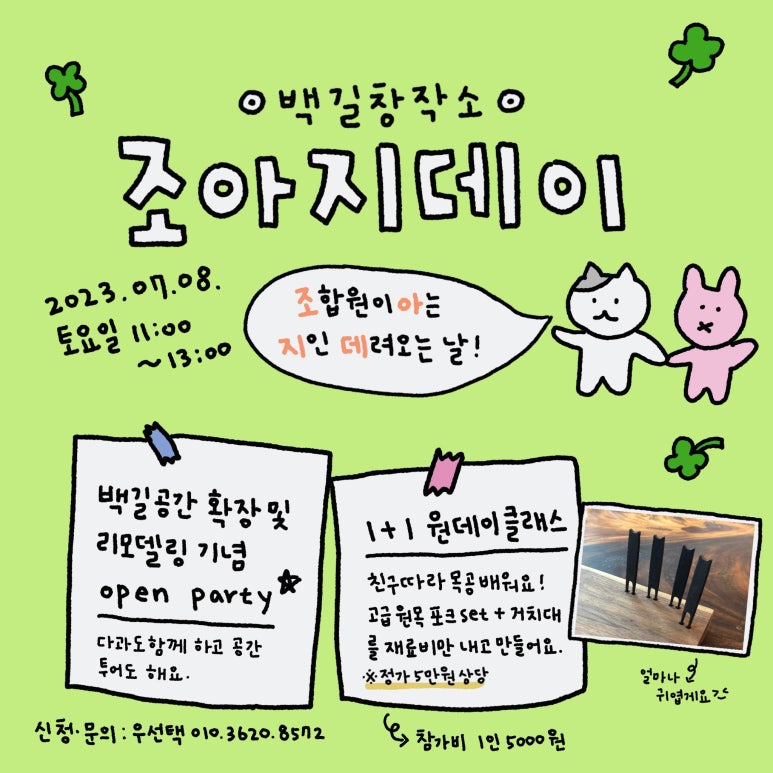 백길창작소
조아지데이
2023.07.08.
토요일 11:00
~13:00
조합원이 아는
지인 데려오는 날!
백길공간 확장 및
리모델링 기념
open party
다과도 함께 하고 공간
투어도 해요.
1+1 원데이클래스
친구따라 목공 배워요!
고급 원목 포크 set + 거치대
를 재료비만 내고 만들어요.
※정가 5만원 상당
얼마나
귀엽게요
신청·문의 : 우선택 010.3620.8572
참가비 1인 5000원